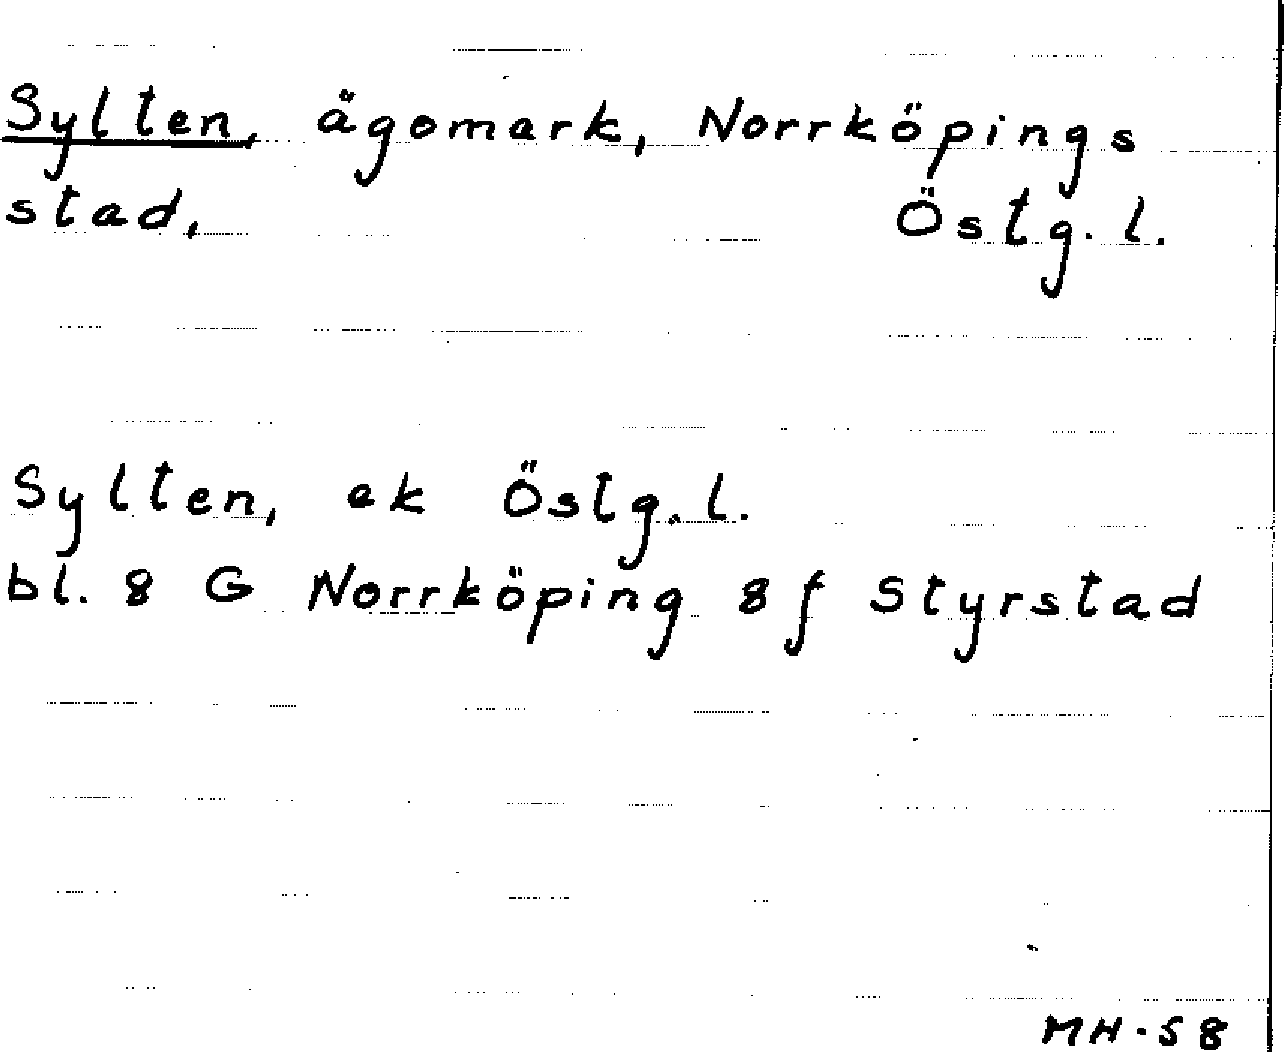 Sylten, ägomark, Norrköpings
stad, Östg.l.
Sylten, ek Östg.l.
bl. 8 G Norrköping 8 f Styrstad
MH-58